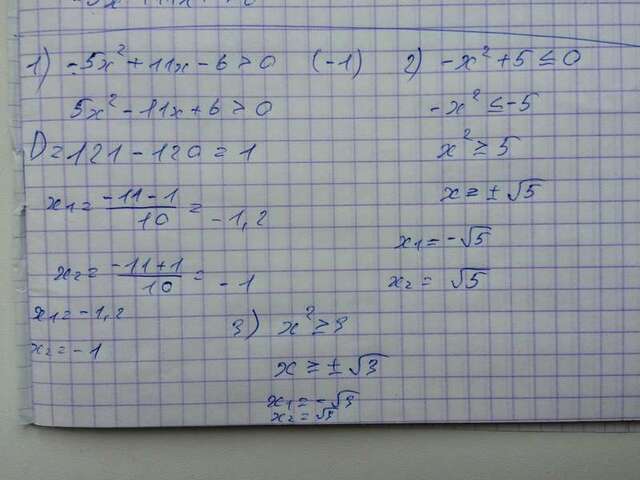 1) -5x² + 11x - 6 > 0 (-1)
5x² - 11x + 6 > 0
D = 121 - 120 = 1
x₁ = (-11 - 1)/10 = -1,2
x₂ = (-11 + 1)/10 = -1
x₁ = -1,2
x₂ = -1
2) -x² + 5 ≤ 0
-x² ≤ -5
x² ≥ 5
x = ± √5
x₁ = -√5
x₂ = √5
3) x² ≥ 3
x = ± √3